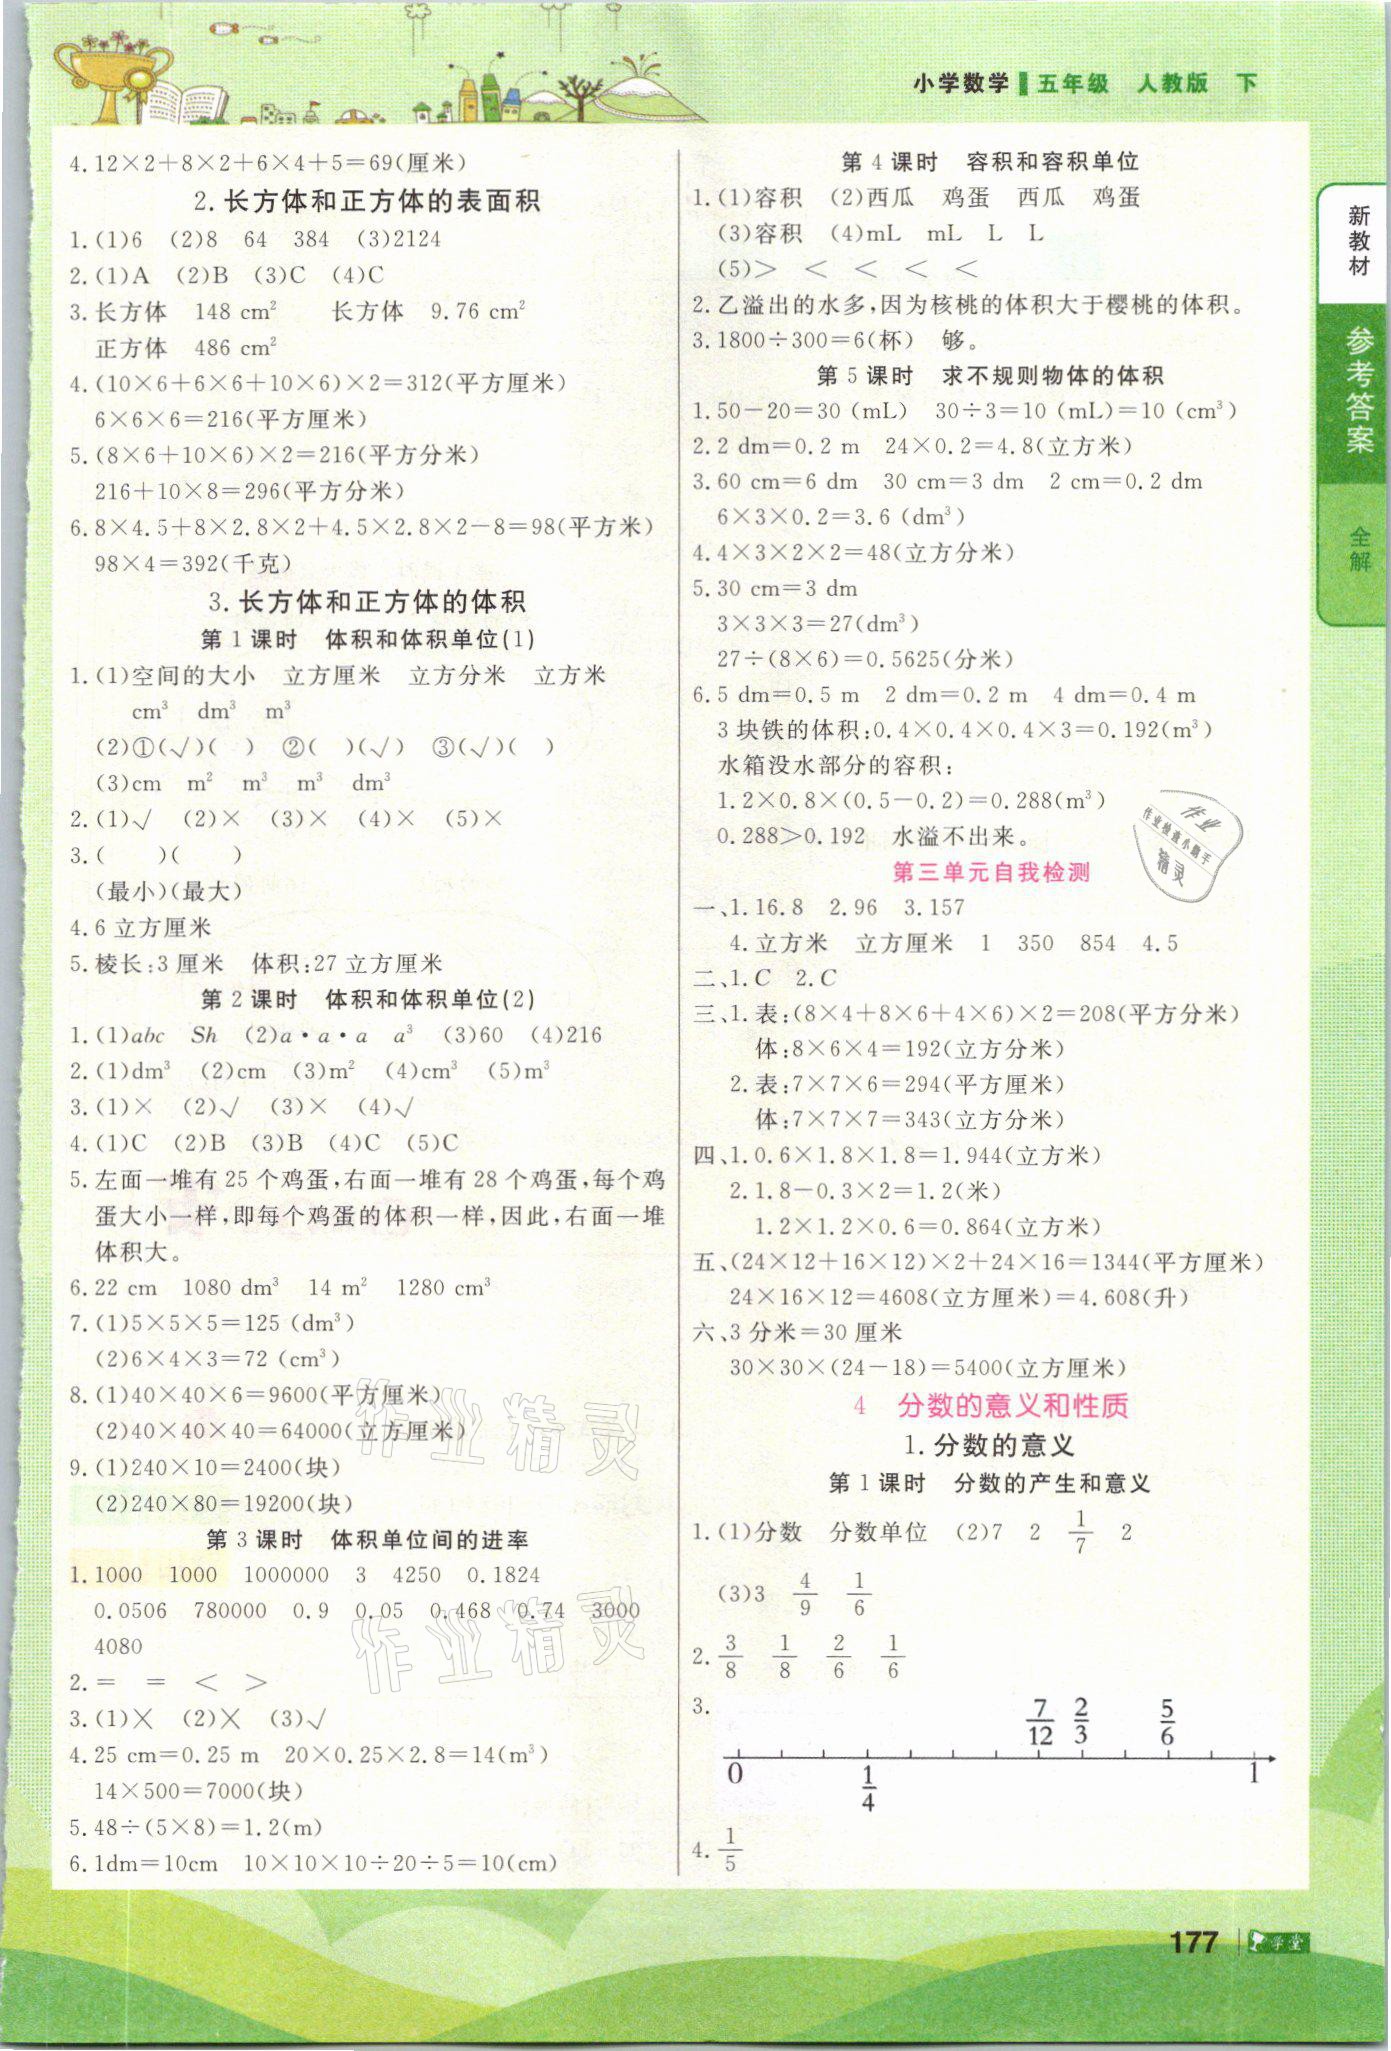 小学数学 五年级 人教版 下
4.12×2+8×2+6×4+5=69(厘米)
2.长方体和正方体的表面积
1.(1)6 (2)8 64 384 (3)2124
2.(1)A (2)B (3)C (4)C
3.长方体 148 cm² 长方体 9.76 cm²
正方体 486 cm²
4.(10×6+6×6+10×6)×2=312(平方厘米)
6×6×6=216(平方厘米)
5.(8×6+10×6)×2=216(平方分米)
216+10×8=296(平方分米)
6.8×4.5+8×2.8×2+4.5×2.8×2-8=98(平方米)
98×4=392(千克)
3.长方体和正方体的体积
第1课时 体积和体积单位(1)
1.(1)空间的大小 立方厘米 立方分米 立方米
cm³ dm³ m³
(2)①(√)( ) ②( )(√) ③(√)( )
(3)cm m² m³ m³ dm³
2.(1)√ (2)× (3)× (4)× (5)×
3.( )( )
(最小)(最大)
4.6立方厘米
5.棱长:3厘米 体积:27立方厘米
第2课时 体积和体积单位(2)
1.(1)abc Sh (2)a·a·a a³ (3)60 (4)216
2.(1)dm³ (2)cm (3)m² (4)cm³ (5)m³
3.(1)× (2)√ (3)× (4)√
4.(1)C (2)B (3)B (4)C (5)C
5.左面一堆有25个鸡蛋,右面一堆有28个鸡蛋,每个鸡
蛋大小一样,即每个鸡蛋的体积一样,因此,右面一堆
体积大。
6.22 cm 1080 dm³ 14 m² 1280 cm³
7.(1)5×5×5=125 (dm³)
(2)6×4×3=72 (cm³)
8.(1)40×40×6=9600(平方厘米)
(2)40×40×40=64000(立方厘米)
9.(1)240×10=2400(块)
(2)240×80=19200(块)
第3课时 体积单位间的进率
1.1000 1000 1000000 3 4250 0.1824
0.0506 780000 0.9 0.05 0.468 0.74 3000
4080
2.= = < >
3.(1)× (2)× (3)√
4.25 cm=0.25 m 20×0.25×2.8=14(m³)
14×500=7000(块)
5.48÷(5×8)=1.2(m)
6.1dm=10cm 10×10×10÷20÷5=10(cm)
第4课时 容积和容积单位
1.(1)容积 (2)西瓜 鸡蛋 西瓜 鸡蛋
(3)容积 (4)mL mL L L
(5)> < < < <
2.乙溢出的水多,因为核桃的体积大于樱桃的体积。
3.1800÷300=6(杯) 够。
第5课时 求不规则物体的体积
1.50-20=30 (mL) 30÷3=10 (mL)=10 (cm³)
2.2 dm=0.2 m 24×0.2=4.8(立方米)
3.60 cm=6 dm 30 cm=3 dm 2 cm=0.2 dm
6×3×0.2=3.6 (dm³)
4.4×3×2×2=48(立方分米)
5.30 cm=3 dm
3×3×3=27(dm³)
27÷(8×6)=0.5625(分米)
6.5 dm=0.5 m 2 dm=0.2 m 4 dm=0.4 m
3块铁的体积:0.4×0.4×0.4×3=0.192(m³)
水箱没水部分的容积:
1.2×0.8×(0.5-0.2)=0.288(m³)
0.288>0.192 水溢不出来。
第三单元自我检测
一、1.16.8 2.96 3.157
4.立方米 立方厘米 1 350 854 4.5
二、1.C 2.C
三、1.表:(8×4+8×6+4×6)×2=208(平方分米)
体:8×6×4=192(立方分米)
2.表:7×7×6=294(平方厘米)
体:7×7×7=343(立方分米)
四、1.0.6×1.8×1.8=1.944(立方米)
2.1.8-0.3×2=1.2(米)
1.2×1.2×0.6=0.864(立方米)
五、(24×12+16×12)×2+24×16=1344(平方厘米)
24×16×12=4608(立方厘米)=4.608(升)
六、3分米=30厘米
30×30×(24-18)=5400(立方厘米)
4 分数的意义和性质
1.分数的意义
第1课时 分数的产生和意义
1.(1)分数 分数单位 (2)7 2 1/7 2
(3)3 4/9 1/6
2.3/8 1/8 2/6 1/6
3.
7/12 2/3 5/6
0 1/4 1
4.1/5
新教材
参考答案
全解
作业
作业检查小助手
精灵
作业精灵
作业精灵
177 学堂